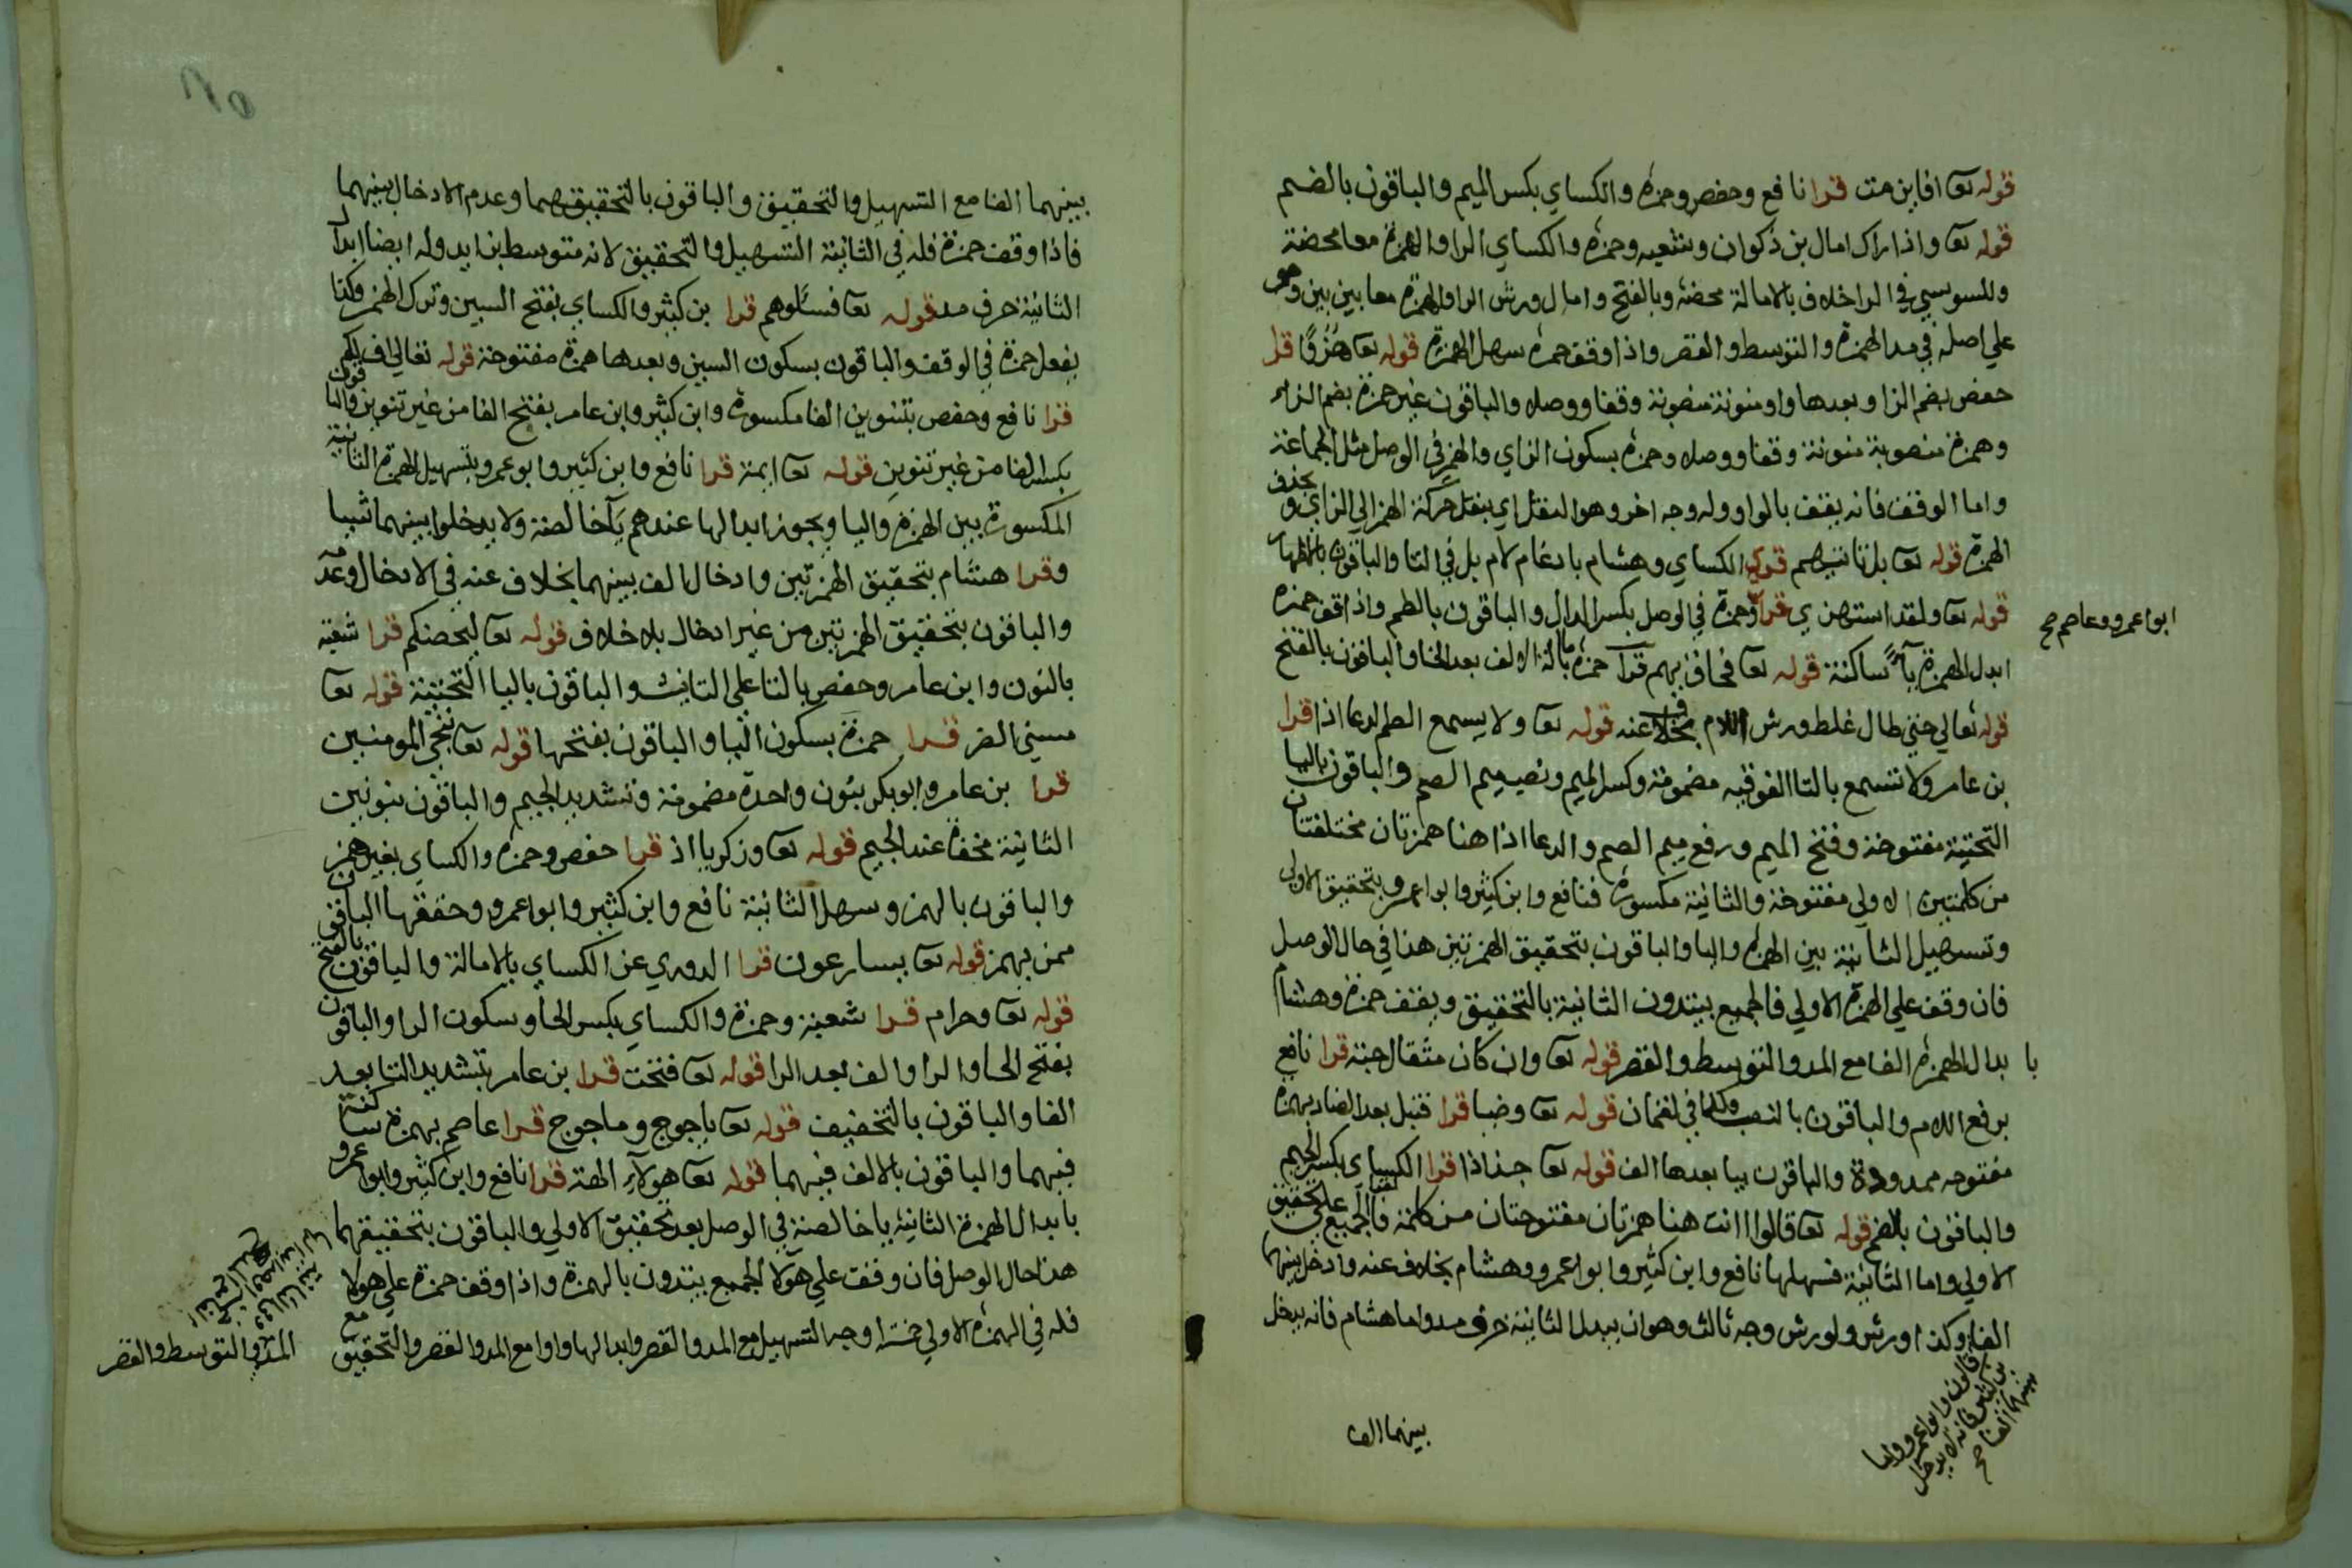 قوله تعا افاين مت قرا نافع وحفص وحمزة والكساي بكسر الميم والباقون بالضم
قوله تعا واذا راك امال بن ذكوان وشعبه وحمزة والكساي الرا والهمزة معا محضة
وللسوسي في الرا خلاف بالامالة محضة وبالفتح وامال ورش الرا والهمزة معا بين بين وهو
علي اصله في مد الهمزة والتوسط والقصر واذا وقف حمزة سهل الهمزة قوله تعا هزوًا قرا
حفص بضم الزا وبعدها واو منونة منصوبة وقفا ووصلا والباقون غير حمزة بضم الزاء
وهمزة منصوبة منونة وقفا ووصلا وحمزة بسكون الزاي والهمز في الوصل مثل الجماعة
واما الوقف فانه يقف بالواو وله وجه اخر وهو النقل اي ينقل حركة الهمز الي الزاي ويحذف
الهمزة قوله تعا بل تاتيهم قرا الكساي وهشام بادغام لام بل في التا والباقون بالاظهار
قوله تعا ولقد استهزي قرا وحمزة في الوصل بكسر الدال والباقون بالضم واذا وقف حمزة
ابوا عمرو وعاصم صح
ابدل الهمزة يآءً ساكنة قوله تعا فحاق بهم قرا حمزة بامالة الالف بعد الحا والباقون بالفتح
قوله تعالي حتي طال غلظ ورش اللام بخلاف عنه قوله تعا ولا يسمع الصم الدعا اذا قرا
بن عامر ولا تسمع بالتا الفوقيه مضمومة وكسر الميم ونصب ميم الصم والباقون باليا
التحتية مفتوحة وفتح الميم ورفع ميم الصم والدعا اذا هنا همزتان مختلفتان
من كلمتين الاولي مفتوحة والثانية مكسورة فنافع وابن كثير وابوا عمرو بتحقيق الاولي
وتسهيل الثانية بين الهمزة واليا والباقون بتحقيق الهمزتين هذا في حال الوصل
فان وقف علي الهمزة الاولي فالجميع يبتدون الثانية بالتحقيق ويقف حمزة وهشام
با بدال الهمزة الفا مع المد والتوسط والقصر قوله تعا وان كان مثقال حبة قرا نافع
برفع اللام والباقون بالنصب وكذا في لقمان قوله تعا وضيا قرا قنبل بعد الضاد بهمزة
مفتوحه ممدودة والباقون بيا بعدها الف قوله تعا جذاذا قرا الكساي بكسر الجيم
والباقون بالضم قوله تعا قالوا اانت هنا همزتان مفتوحتان من كلمة فالجميع علي تحقيق
الاولي واما الثانية فسهلها نافع وابن كثير وابوا عمرو وهشام بخلاف عنه وادخل بينهما
الفا وكذا ورش ولورش وجه ثالث وهو ان يبدل الثانية حرف مد واما هشام فانه يدخل
قالون وابوا عمرو واما
بن كثير فانه لا يدخل
بينهما الفا صح
بينهما الف
بينهما الفا مع التسهيل والتحقيق والباقون بالتحقيق فيهما وعدم الادخال بينهما
فاذا وقف حمزة فله في الثانية التسهيل والتحقيق لانه متوسط بزايد وله ايضا ابدال
الثانية حرف مد قوله تعا فسئلوهم قرا بن كثير والكساي بفتح السين وترك الهمز وكذا
يفعل حمزة في الوقف والباقون بسكون السين وبعدها همزة مفتوحة قوله تعالي اف لكم
قرا نافع وحفص بتنوين الفا مكسورة وابن كثير وابن عامر بفتح الفا من غير تنوين والباقون
بكسر الفا من غير تنوين قوله تعا ايمة قرا نافع وابن كثير وابو عمرو بتسهيل الهمزة الثانية
المكسورة بين الهمزة واليا ويجوز ابدالها عندهم يآ خالصة ولا يدخلوا بينهما شيا
وقرا هشام بتحقيق الهمزتين وادخال الف بينهما بخلاف عنه في الادخال وعدمه
والباقون بتحقيق الهمزتين من غير ادخال بلا خلاف قوله تعا ليحصنكم قرا شعبة
بالنون وابن عامر وحفص بالتا علي التانيث والباقون باليا التحتية قوله تعا
مسني الضر قرا حمزة بسكون اليا والباقون بفتحها قوله تعا ننجي المومنين
قرا بن عامر وابو بكر بنون واحدة مضمومة وتشديد الجيم والباقون بنونين
الثانية مخفاة عند الجيم قوله تعا وزكريا اذ قرا حفص وحمزة والكساي بغير همز
والباقون بالهمز وسهل الثانية نافع وابن كثير وابوا عمرو وحققها الباقون
ممن يهمز قوله تعا يسارعون قرا الدوري عن الكساي بالامالة والباقون بالفتح
قوله تعا وحرام قرا شعبة وحمزة والكساي بكسر الحا وسكون الرا والباقون
بفتح الحا والرا والف بعد الرا قوله تعا فتحت قرا بن عامر بتشديد التا بعد
الفا والباقون بالتخفيف قوله تعا ياجوج وماجوج قرا عاصم بهمزة ساكنة
فيهما والباقون بالالف فيهما قوله تعا هولآء الهة قرا نافع وابن كثير وابوا عمرو
بابدال الهمزة الثانية يا خالصة في الوصل بعد تحقيق الاولي والباقون بتحقيقهما
هذا حال الوصل فان وقفت علي هولا الجميع يبتدون بالهمزة واذا وقف حمزة علي هولا
فله في الهمزة الاولي خمسة اوجه التسهيل مع المد والقصر وابدالها واوا مع المد والقصر والتحقيق مع
المد والتوسط والقصر